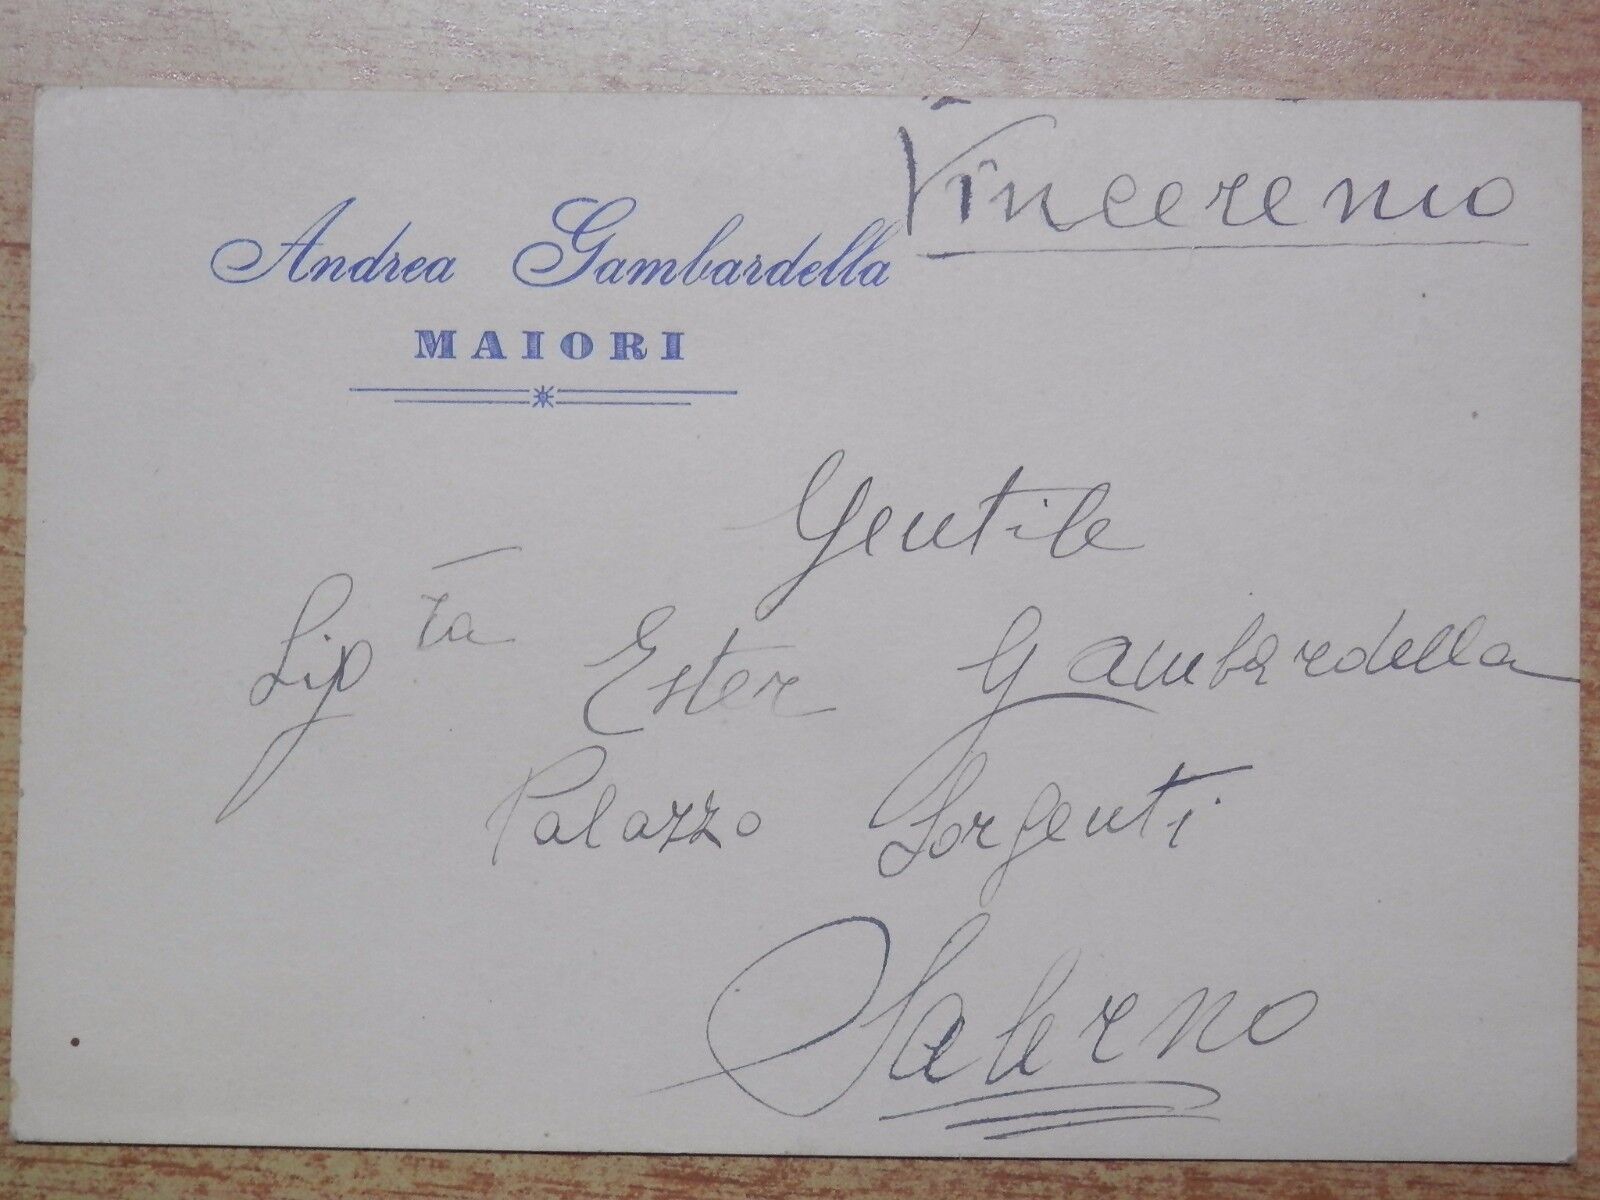 Vinceremo
Andrea Gambardella
MAIORI
Gentile
Sig.ra Ester Gambardella
Palazzo Sorgenti
Salerno